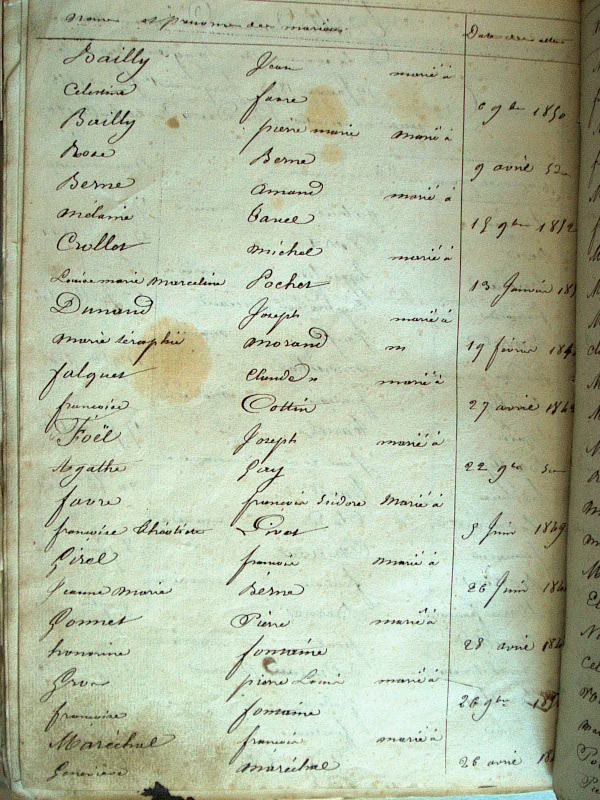 Noms et prénoms des mariés Date des actes
Bailly Jean marié à
Célestine favre 9bre 1850
Bailly pierre marie marié à
Rose Berne 9 avril 52
Berne amand marié à
mélanie 15 9bre 1852
Crollet michel marié à
Louise marie Marceline Pochet 13 Janvier
Dunand Joseph marié à
marie séraphie morand 19 février
falquet Claude marié à
françoise Cottin 27 avril
Foël Joseph marié à
Agathe Gay 22 9bre
favre françois isidore Marié à
françoise Pivot 5 Juin 1849
Girel françois marié à
Jeanne Marie Berne 26 Juin
Gonnet Pierre marié à
honorine fontaine 28 avril
Gros pierre Louis marié à
françoise fontaine 26 9bre
Maréchal françois marié à
Geneviève maréchal 26 avril